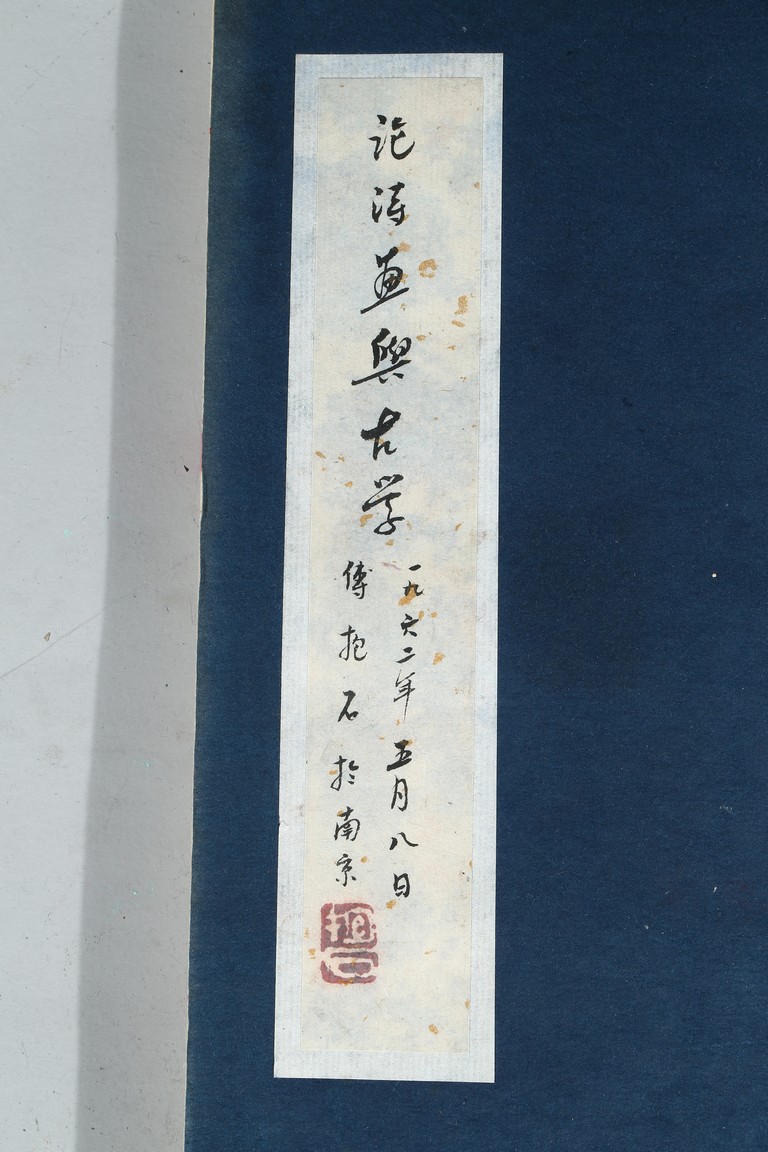 畫與古学
一九六二年五月八日
傅抱石於南京
抱石